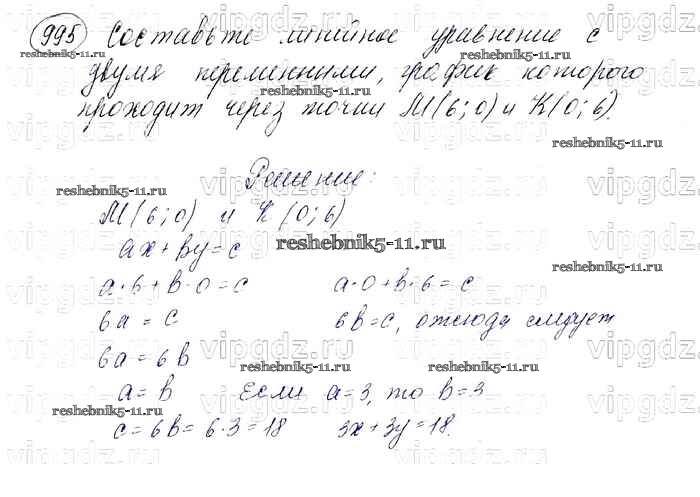 995 Составьте линейное уравнение с
двумя переменными, график которого
проходит через точки М(6;0) и К(0;6).
Решение:
М(6;0) и К(0;6)
ax+by=c
a·6+b·0=c a·0+b·6=c
6a=c 6b=c, отсюда следует
6a=6b
a=b Если a=3, то b=3
c=6b=6·3=18 3x+3y=18.
vipgdz
reshebnik5-11.ru